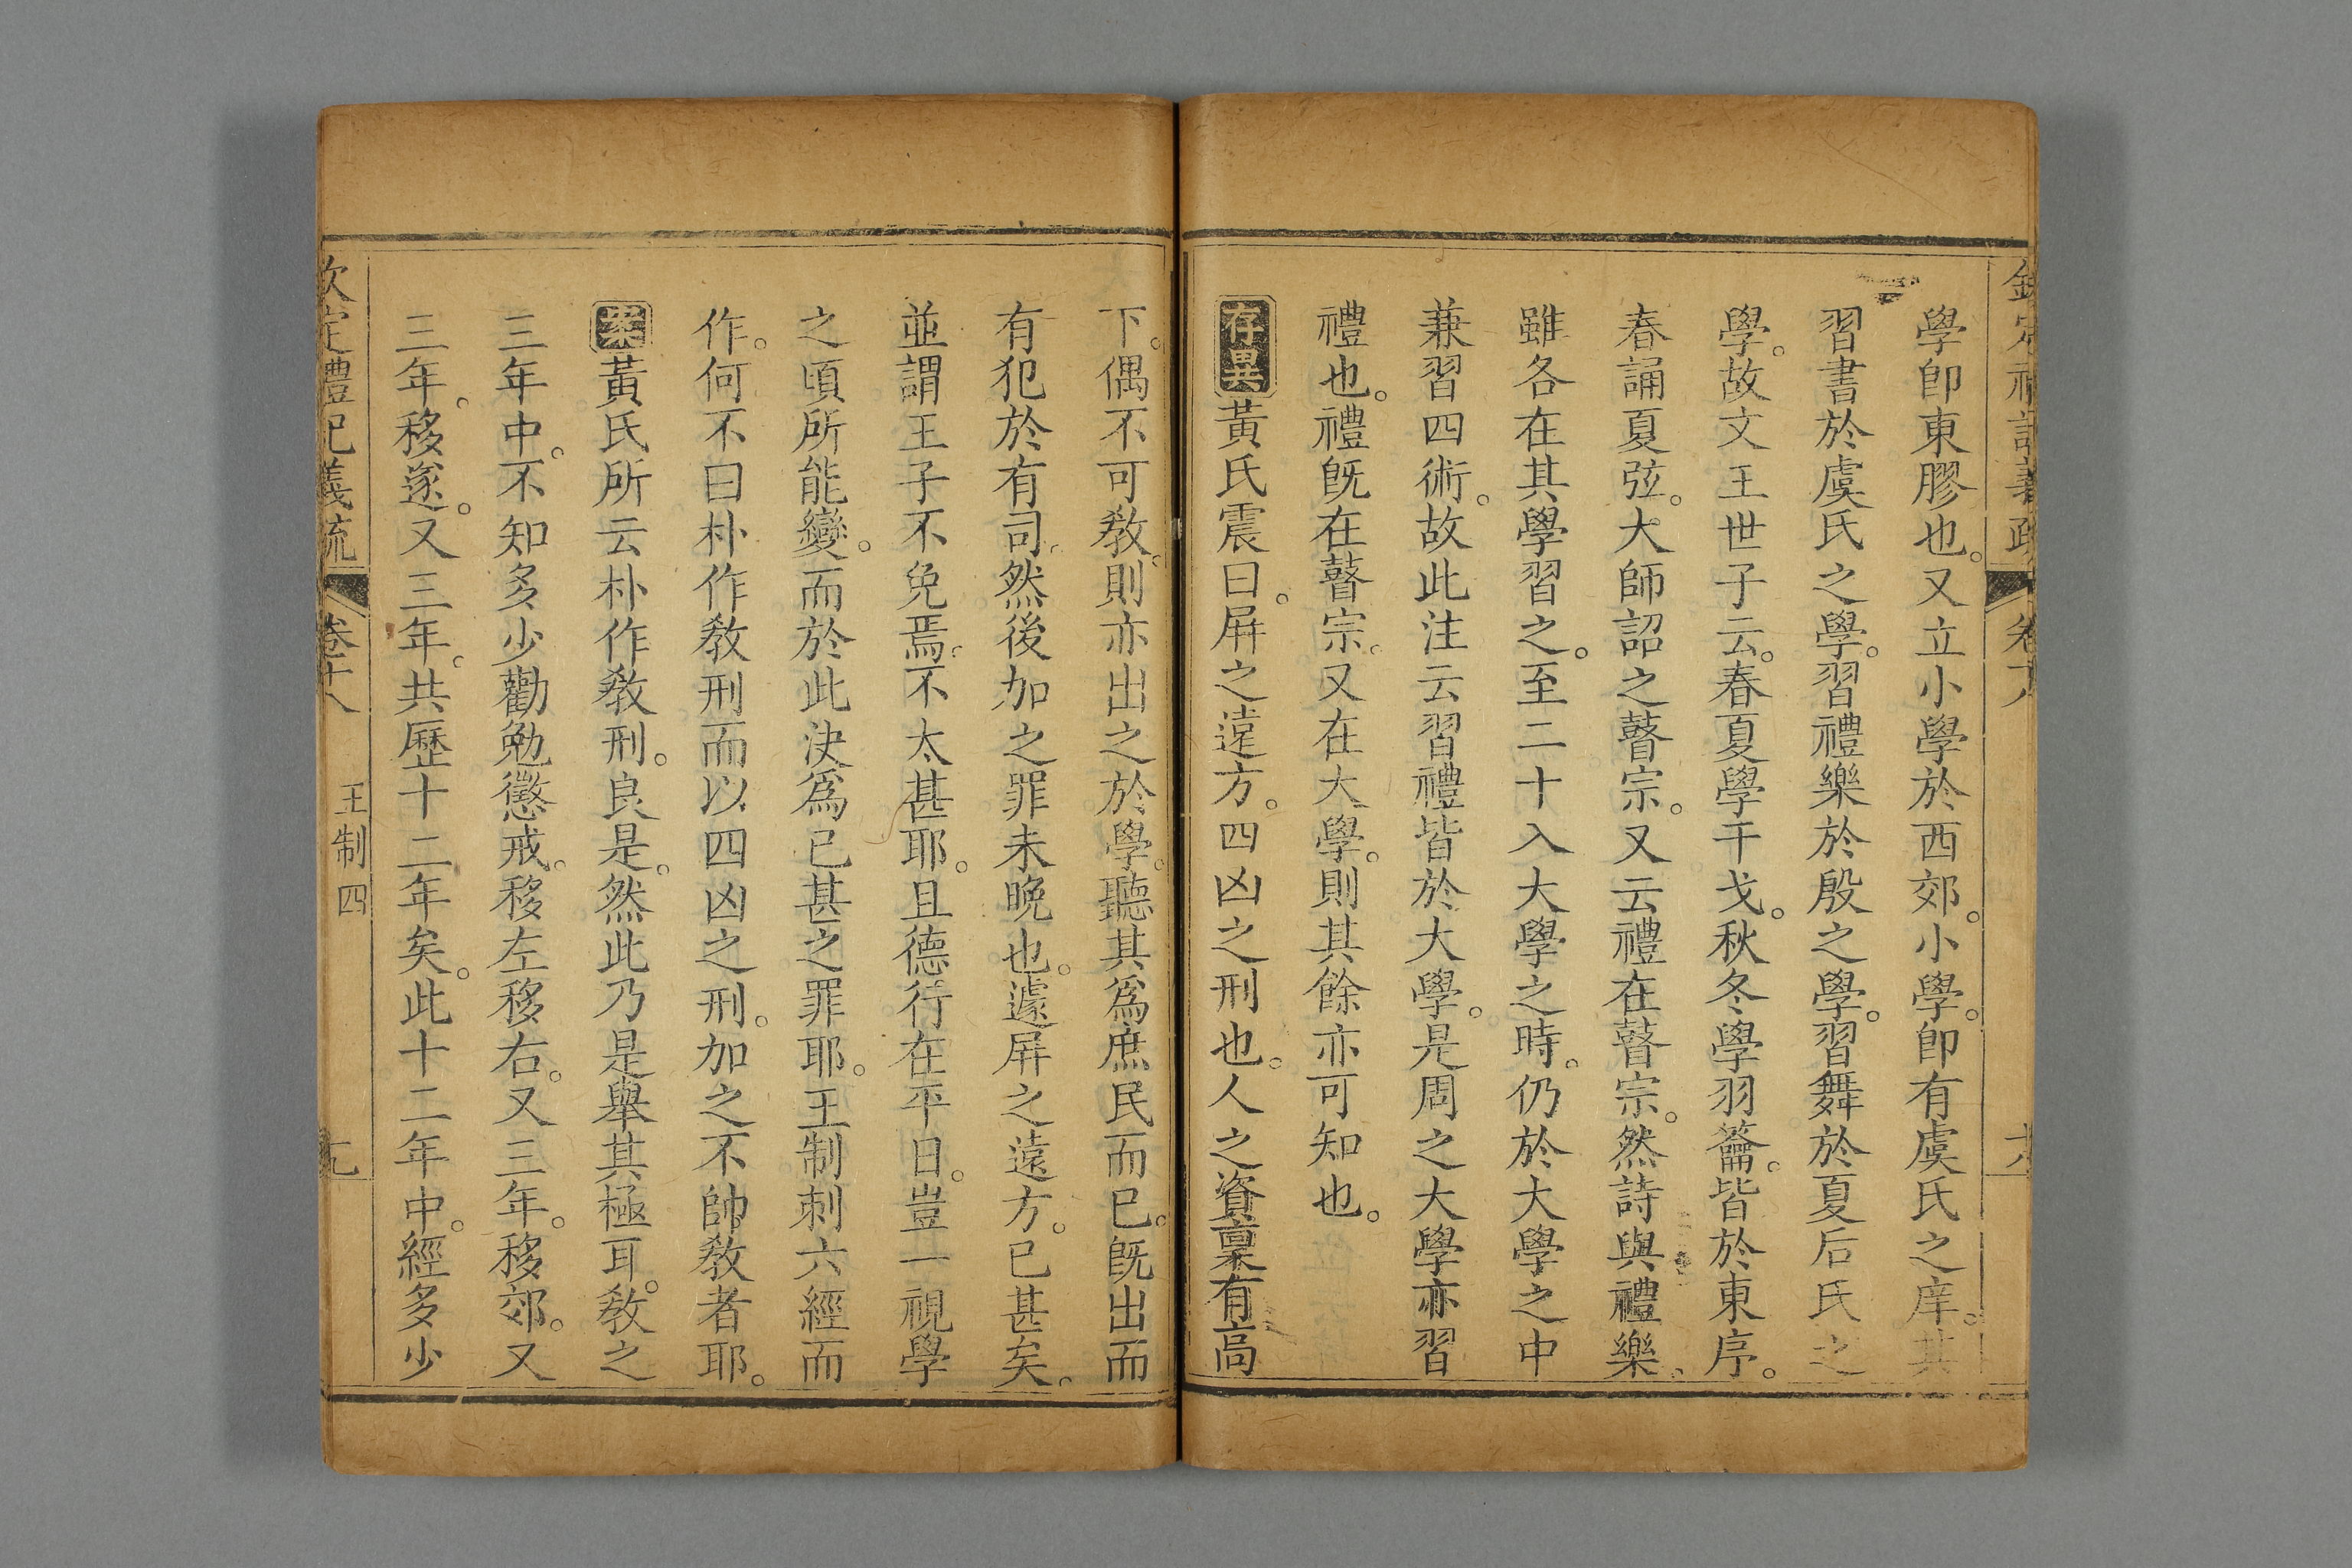 學卽東膠也。又立小學於西郊。小學。卽有虞氏之庠。其
習書於虞氏之學。習禮樂於殷之學。習舞於夏后氏之
學。故文王世子云。春夏學干戈。秋冬學羽籥。皆於東序。
春誦夏弦。大師詔之瞽宗。又云禮在瞽宗。然詩與禮樂。
雖各在其學習之。至二十入大學之時。仍於大學之中
兼習四術。故此注云習禮皆於大學。是周之大學亦習
禮也。禮旣在瞽宗。又在大學。則其餘亦可知也。
存異黃氏震曰。屏之遠方。四凶之刑也。人之資稟有高
下。偶不可敎。則亦出之於學。聽其爲庶民而已。旣出而
有犯於有司。然後加之罪未晚也。遽屏之遠方。已甚矣。
並謂王子不免焉。不太甚耶。且德行在平日。豈一視學
之頃所能變。而於此決爲已甚之罪耶。王制刺六經而
作。何不曰朴作敎刑而以四凶之刑。加之不帥敎者耶。
案黃氏所云朴作敎刑。良是。然此乃是舉其極耳。敎之
三年中。不知多少勸勉懲戒。移左移右。又三年。移郊。又
三年。移遂。又三年。共歷十二年矣。此十二年中。經多少
欽定禮記義疏 卷十八 王制四